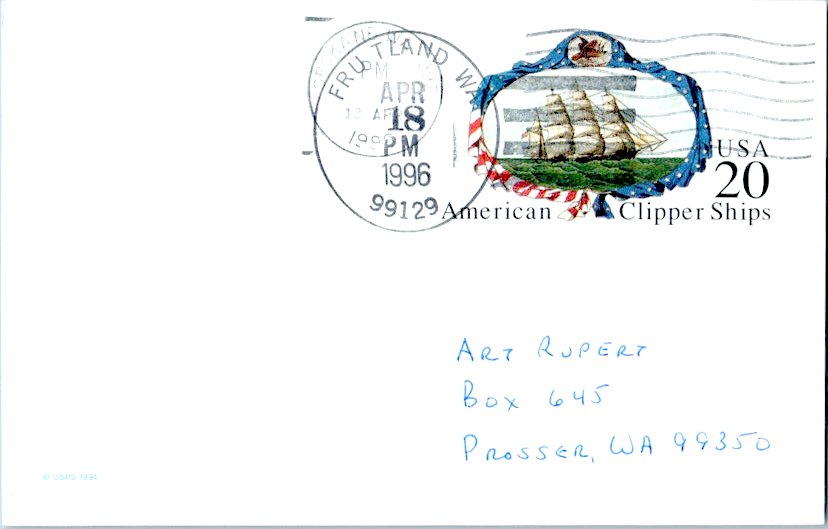 FRUITLAND WA
APR
18
PM
1996
99129
SPOKANE
PM
18 APR
1996
USA
20
American Clipper Ships
ART RUPERT
BOX 645
PROSSER, WA 99350
© USPS 1994